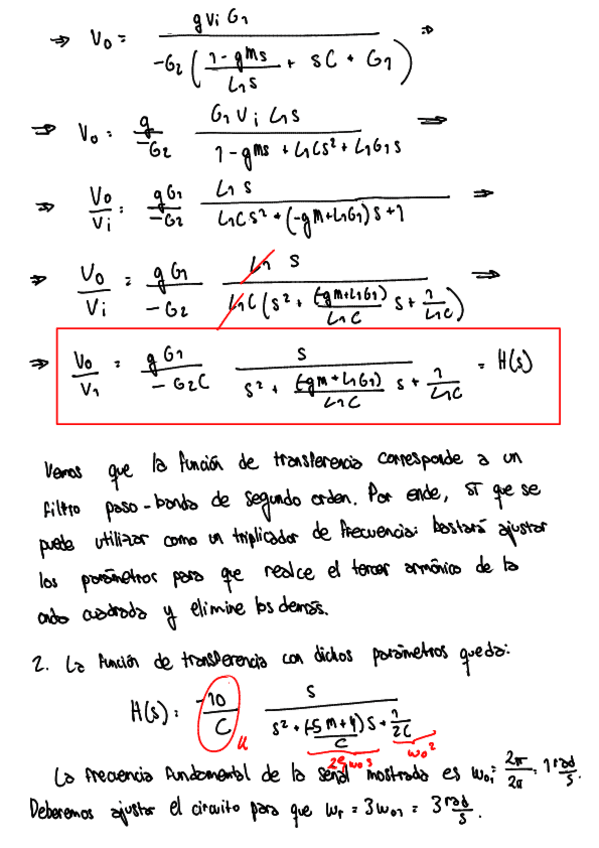 ⇒ V₀ = g Vi G₁ / -G₂ ( (1-gMs)/(L₁s) + sC + G₁ ) ⇒
⇒ V₀ = g/-G₂ · G₁ Vi L₁s / (1-gMs + L₁Cs² + L₁G₁s) ⇒
⇒ V₀/Vi = gG₁/-G₂ · L₁s / (L₁Cs² + (-gM+L₁G₁)s+1) ⇒
⇒ V₀/Vi = gG₁/-G₂ · L₁ s / (L₁C (s² + (-gM+L₁G₁)/(L₁C) s + 1/(L₁C))) ⇒
⇒ V₀/V₁ = gG₁/-G₂C · s / (s² + (-gM+L₁G₁)/(L₁C) s + 1/(L₁C)) = H(s)
Vemos que la función de transferencia corresponde a un
filtro paso-banda de segundo orden. Por ende, SÍ que se
puede utilizar como un triplicador de frecuencia: bastará ajustar
los parámetros para que realce el tercer armónico de la
onda cuadrada y elimine los demás.
2. La función de transferencia con dichos parámetros queda:
H(s) = -10/C · s / (s² + (-5M+4)/C s + 1/(2C))
ω₀²
La frecuencia fundamental de la señal mostrada es ω₀₁ = 2π/2π = 1 rad/s.
Deberemos ajustar el circuito para que ωr = 3ω₀₁ = 3 rad/s.